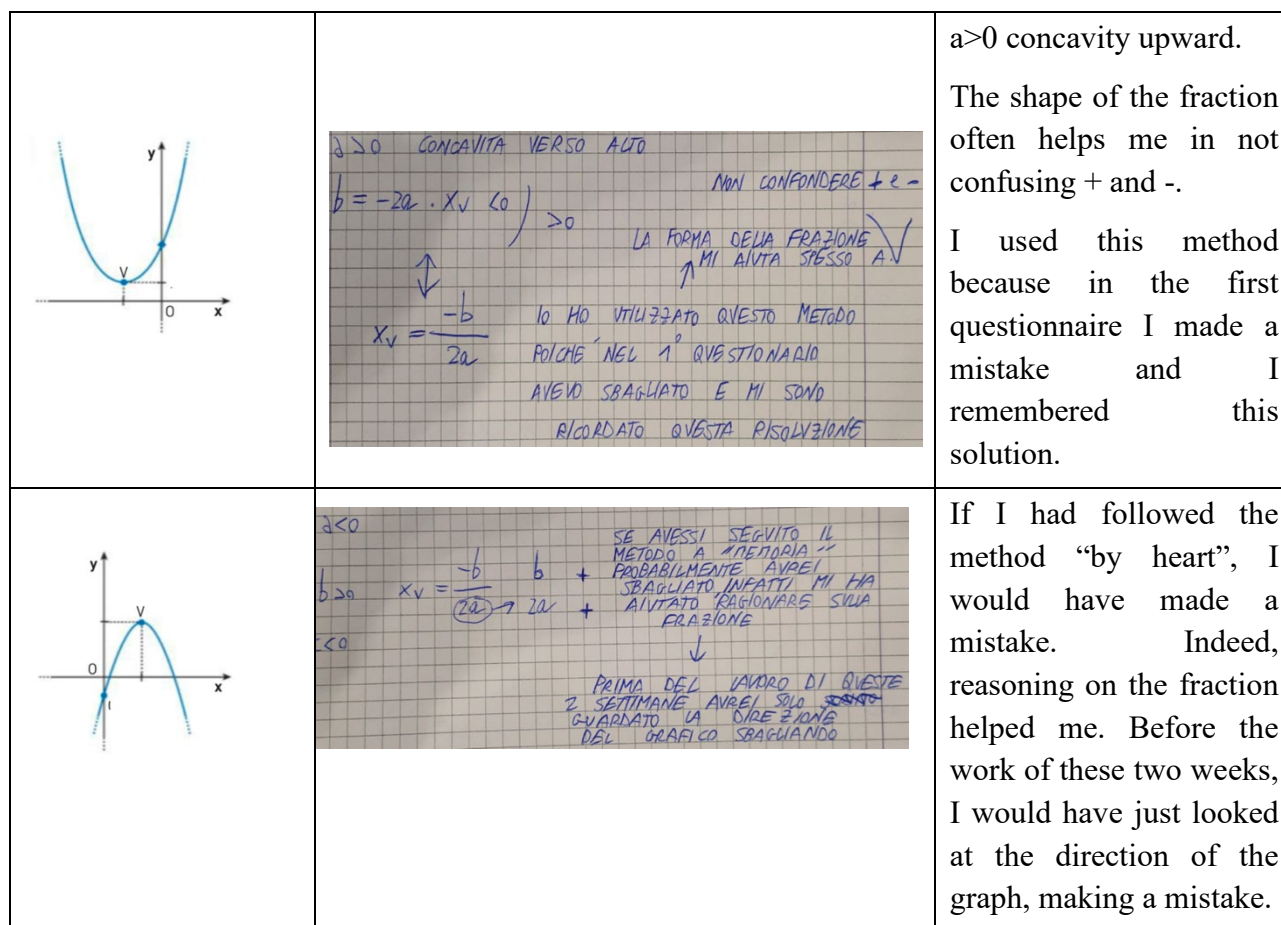 y
V
0
x
a>0 CONCAVITA VERSO ALTO
b = -2a . Xv <0
>0
NON CONFONDERE + e -
LA FORMA DELLA FRAZIONE
MI AIUTA SPESSO A
Xv = -b
2a
IO HO UTILIZZATO QUESTO METODO
POICHE NEL 1° QUESTIONARIO
AVEVO SBAGLIATO E MI SONO
RICORDATO QUESTA RISOLUZIONE
a>0 concavity upward.
The shape of the fraction
often helps me in not
confusing + and -.
I used this method
because in the first
questionnaire I made a
mistake and I
remembered this
solution.
y
V
0
x
I
a<0
b>0
<0
Xv = -b b +
2a → 2a +
SE AVESSI SEGUITO IL
METODO A "MEMORIA"
PROBABILMENTE AVREI
SBAGLIATO, INFATTI MI HA
AIUTATO RAGIONARE SULLA
FRAZIONE
PRIMA DEL LAVORO DI QUESTE
2 SETTIMANE AVREI SOLO
GUARDATO LA DIREZIONE
DEL GRAFICO SBAGLIANDO
If I had followed the
method “by heart”, I
would have made a
mistake. Indeed,
reasoning on the fraction
helped me. Before the
work of these two weeks,
I would have just looked
at the direction of the
graph, making a mistake.